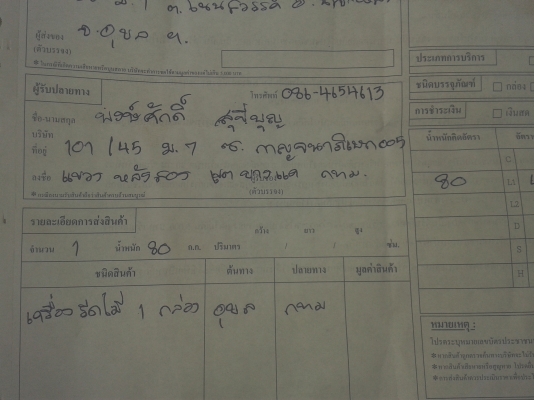 ผู้ส่งของ จ.อุบล ฯ.
(ตัวบรรจง)
ประเภทการบริการ
ผู้รับปลายทาง
โทรศัพท์ 086-4654613
ชนิดบรรจุภัณฑ์ กล่อง
ชื่อ-นามสกุล พงษ์ศักดิ์
บริษัท
การชำระเงิน เงินสด
ที่อยู่ 101/45 ม.7 ซ. กาญจนาภิเษก005
น้ำหนักคิดอัตรา อัตรา
ลงชื่อ แขวง หลักสอง เขต บางแค กทม.
(ตัวบรรจง)
80 L1
L2
รายละเอียดการส่งสินค้า
กว้าง ยาว สูง
D
จำนวน 1 น้ำหนัก 80 ก.ก. ปริมาตร / / ซม.
S
ชนิดสินค้า ต้นทาง ปลายทาง มูลค่าสินค้า
H
เครื่องรีดไม้ 1 กล่อง อุบล กทม
หมายเหตุ :